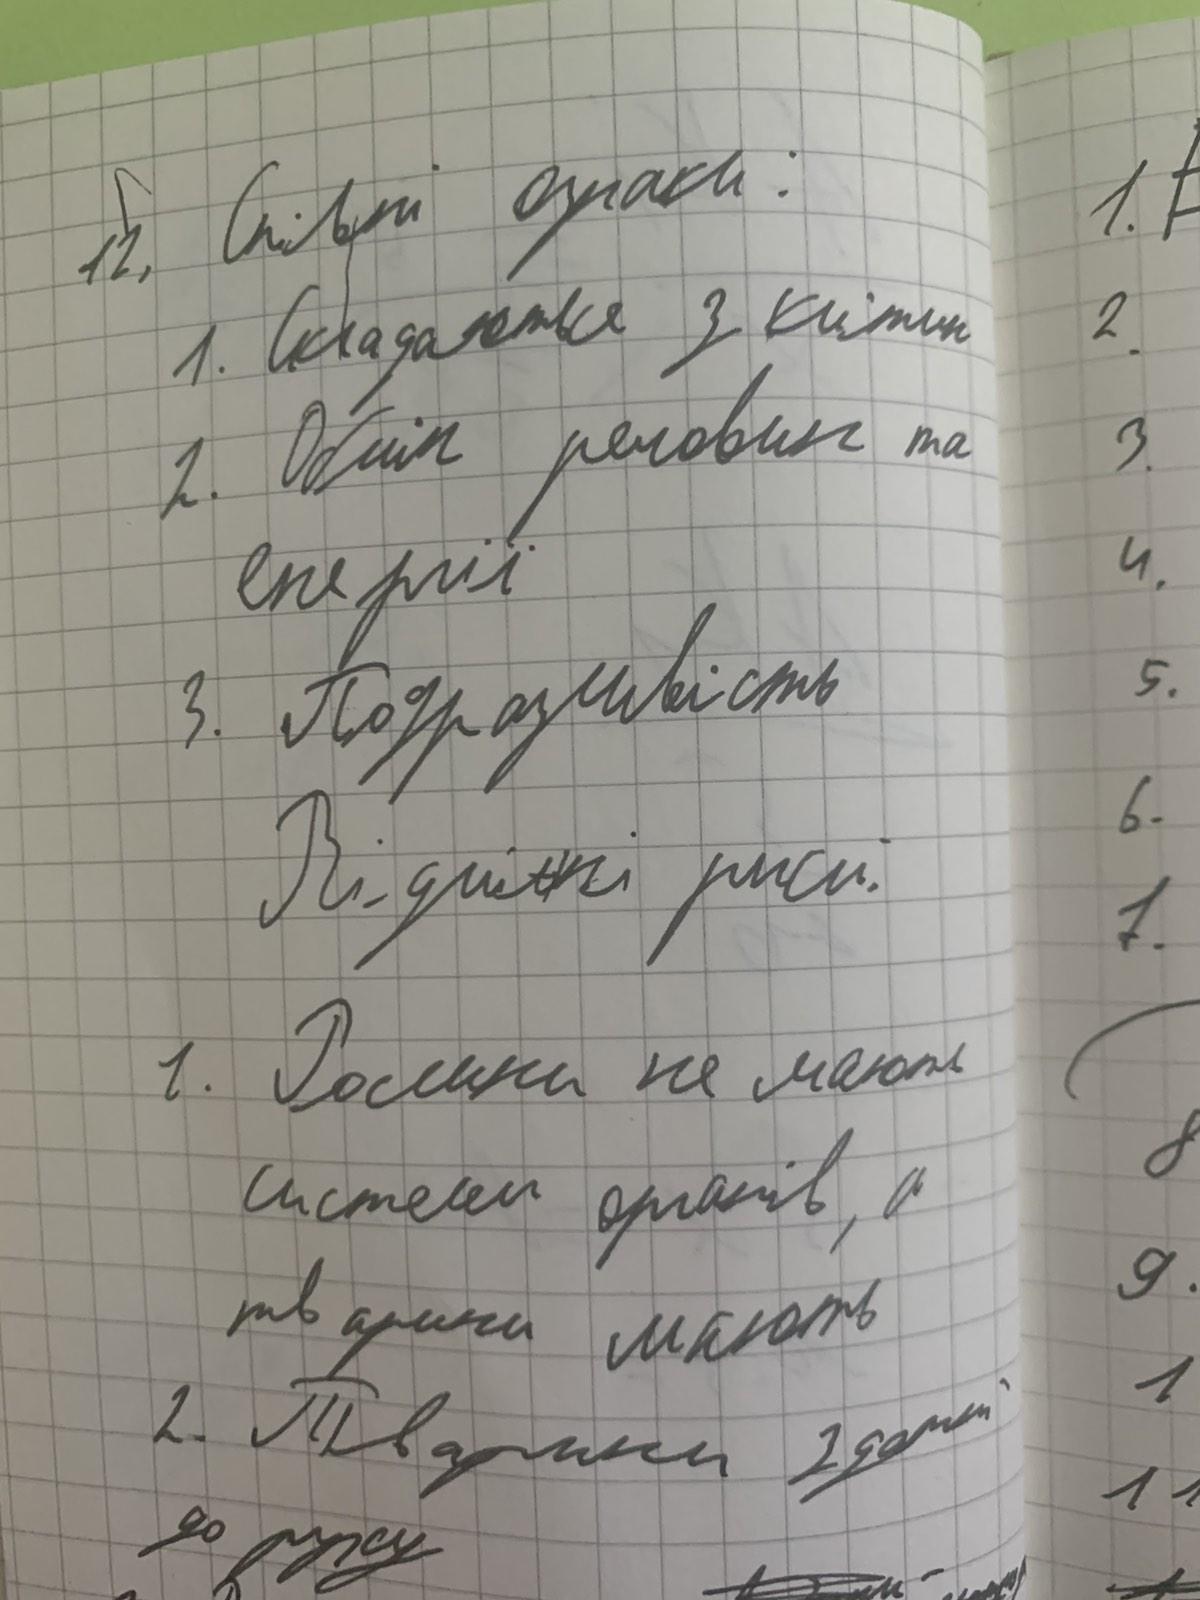 12. Спільні ознаки:
1. Складаються з клітин
2. Обмін речовин та
енергії
3. Подразливість
Відмінні риси:
1. Рослини не мають
системи органів, а
тварини мають
2. Тварини здатні
до руху
1.
2.
3.
4.
5.
6.
7.
8
9.
1
11